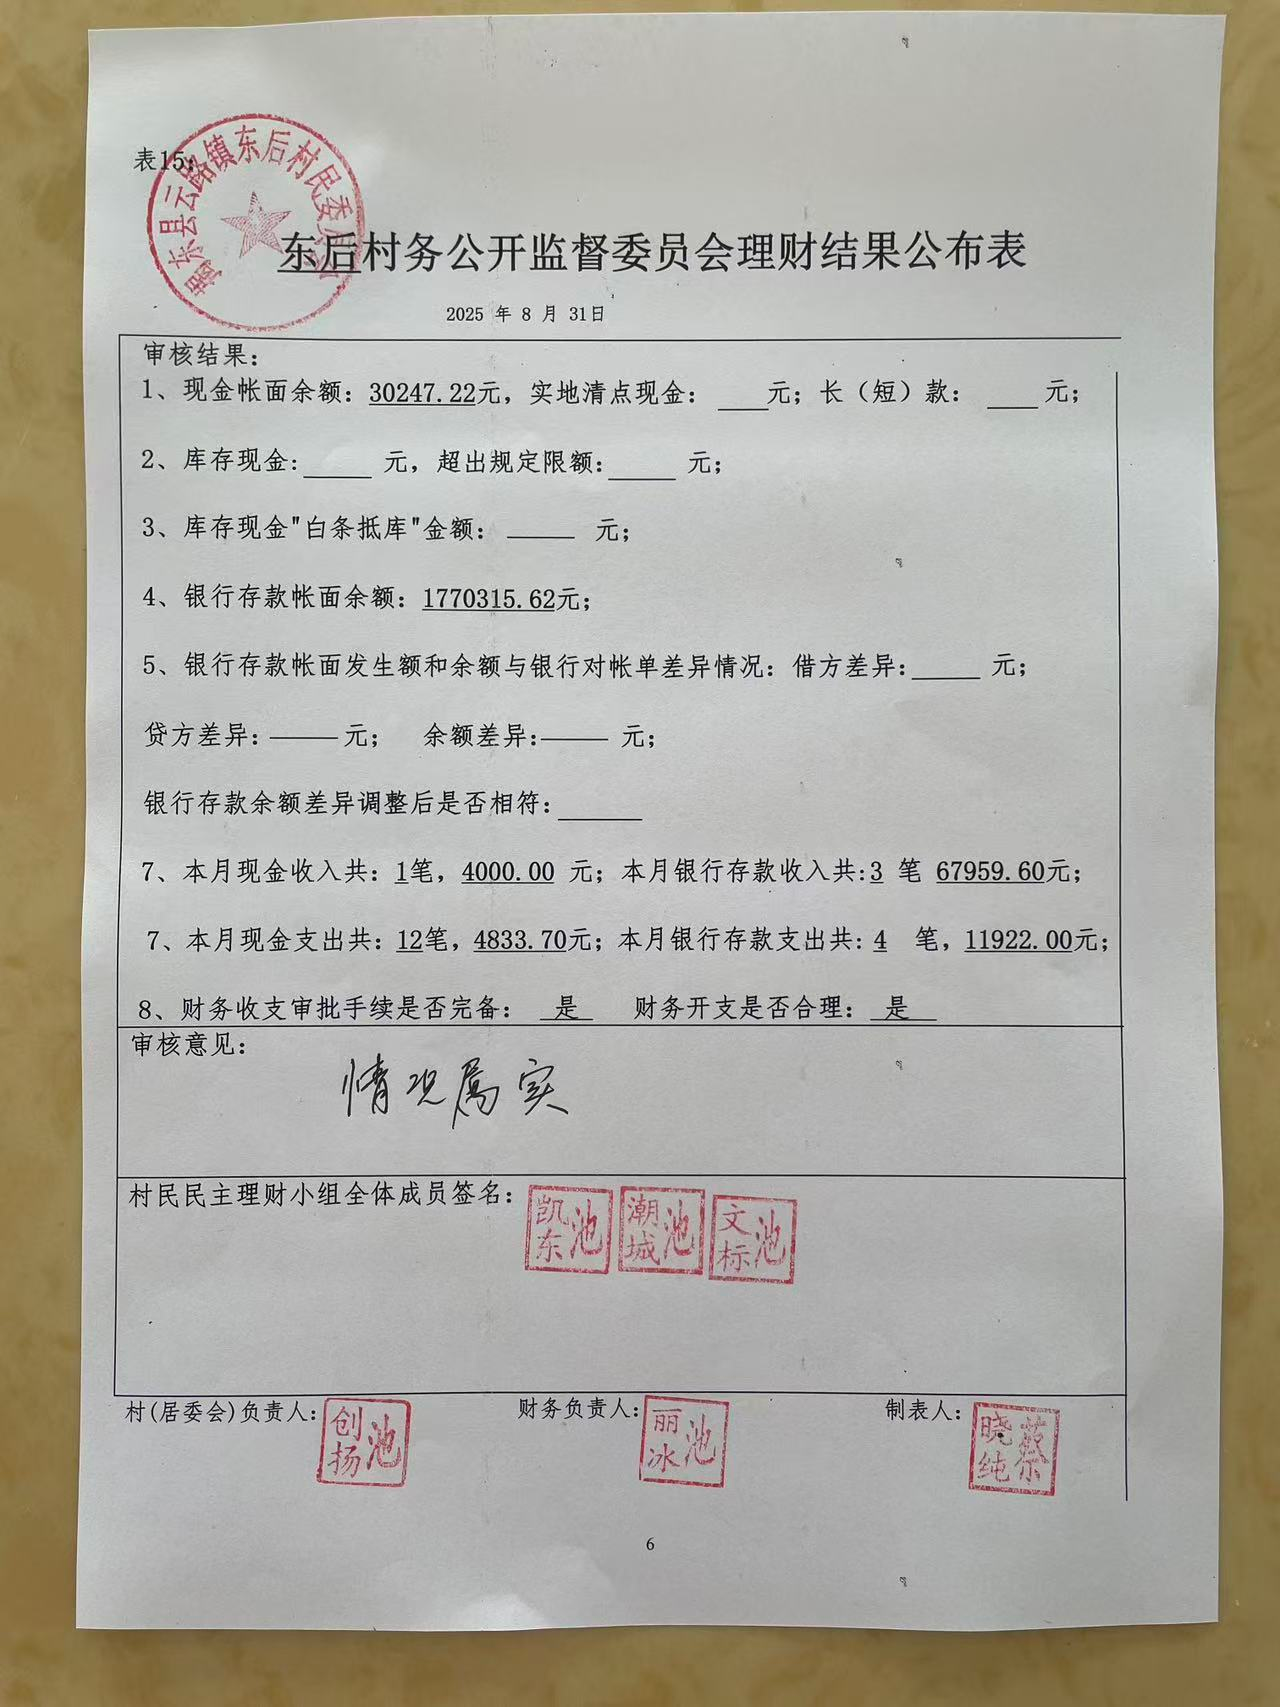 表15:
揭东县云路镇东后村民委员会
东后村务公开监督委员会理财结果公布表
2025 年 8 月 31日
审核结果:
1、现金帐面余额: 30247.22元, 实地清点现金: ____元; 长(短)款: ____元;
2、库存现金:_____ 元, 超出规定限额:_____ 元;
3、库存现金"白条抵库"金额: _____ 元;
4、银行存款帐面余额: 1770315.62元;
5、银行存款帐面发生额和余额与银行对帐单差异情况: 借方差异:_____ 元;
贷方差异:_____元; 余额差异:_____ 元;
银行存款余额差异调整后是否相符:______
7、本月现金收入共: 1笔, 4000.00 元; 本月银行存款收入共:3 笔 67959.60元;
7、本月现金支出共: 12笔, 4833.70元; 本月银行存款支出共: 4 笔, 11922.00元;
8、财务收支审批手续是否完备: 是 财务开支是否合理: 是
审核意见:
情况属实
村民民主理财小组全体成员签名: 池凯东 池潮城 池文标
村(居委会)负责人: 池创扬 财务负责人: 池丽冰 制表人: 蔡晓纯
6